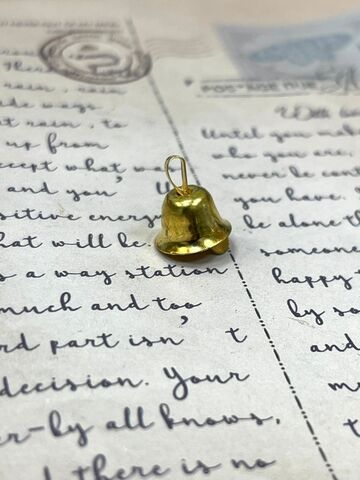 There
rain , rain
ways
rain , to
up from
except what
and you
sitive energy
hat will be
s a way station
much and too
rd part isn ' t
decision. Your
er-by all knows,
d there is no
POSTAGE DUE
Until you make
who you are,
never be cont
you have.
be alone
someone
happy
by so
and